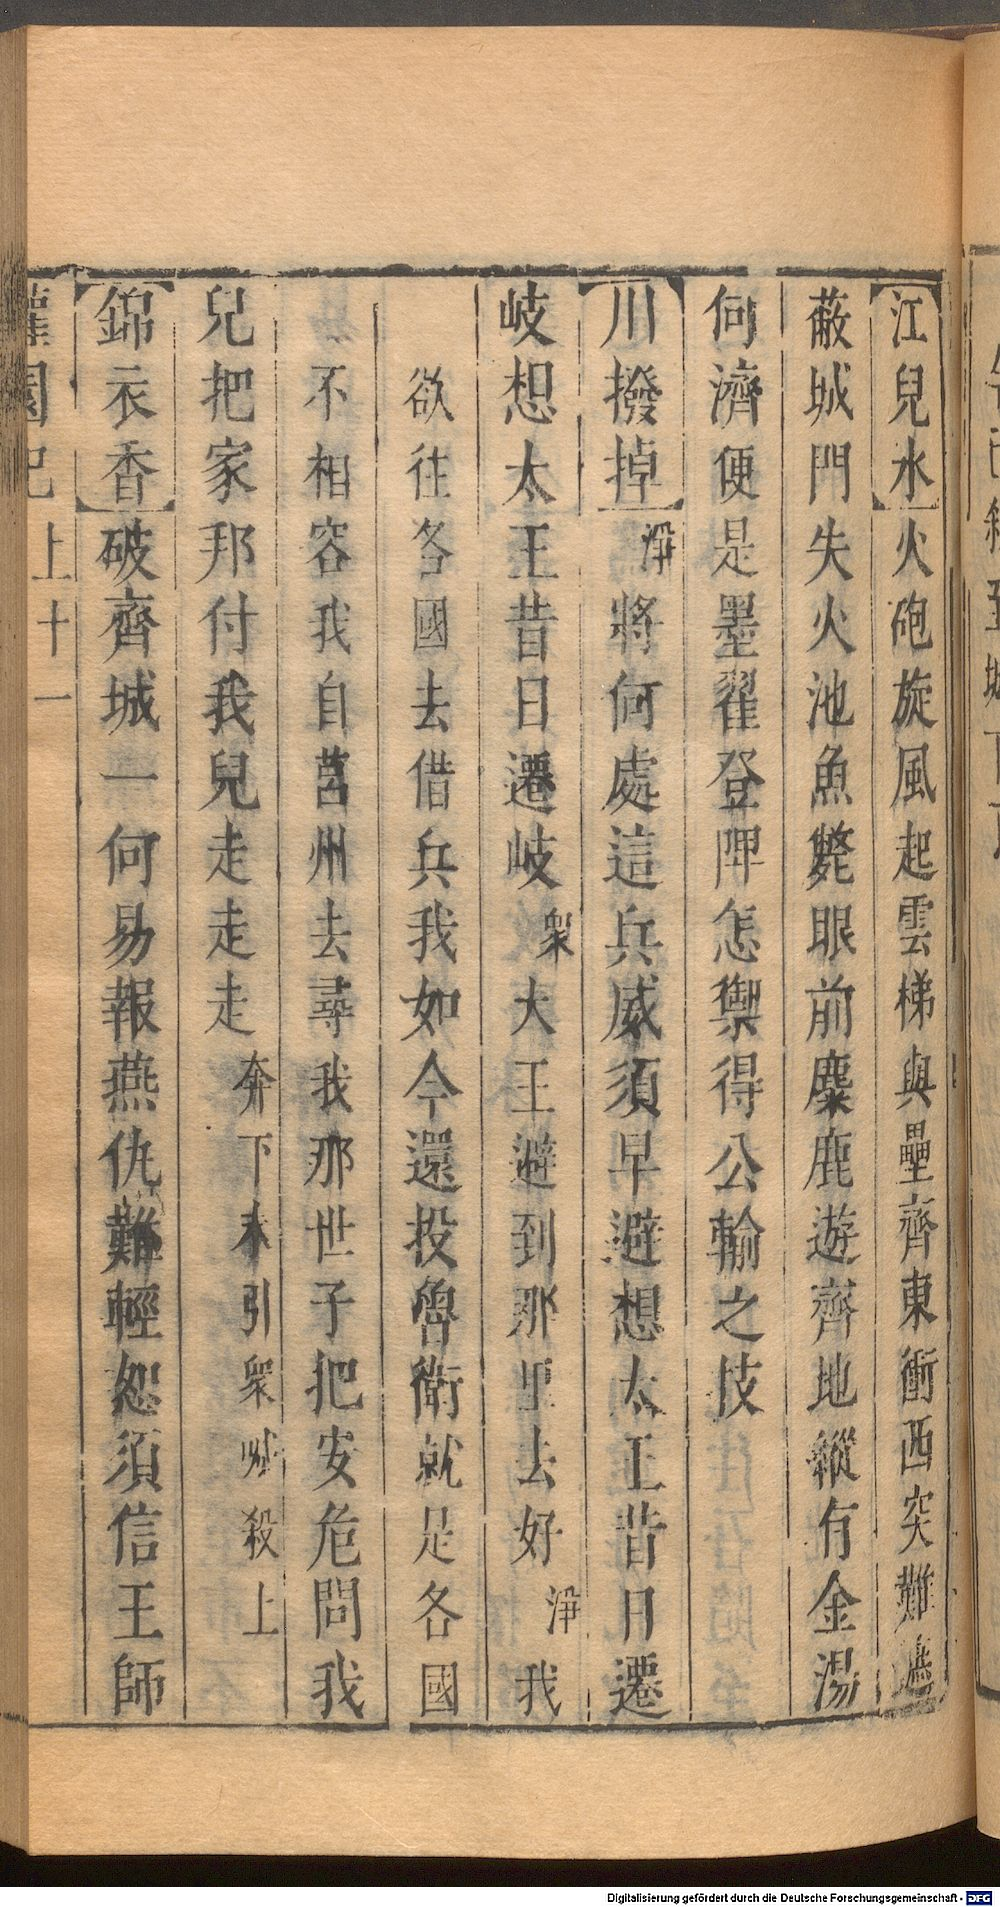 江兒水火砲旋風起雲梯與壘齊東衝西突難遮
蔽城門失火池魚斃眼前麋鹿遊齊地縱有金湯
何濟便是墨翟登陴怎禦得公輸之技
川撥掉淨將何處這兵威須早避想太王昔日遷
岐想太王昔日遷岐衆大王避到那里去好淨我
欲往各國去借兵我如今還投魯衛就是各國
不相容我自莒州去尋我那世子把安危問我
兒把家邦付我兒走走走奔下末引衆喊殺上
錦衣香破齊城一何易報燕仇難輕恕須信王師
灌園記 上 十一
Digitalisierung gefördert durch die Deutsche Forschungsgemeinschaft - DFG